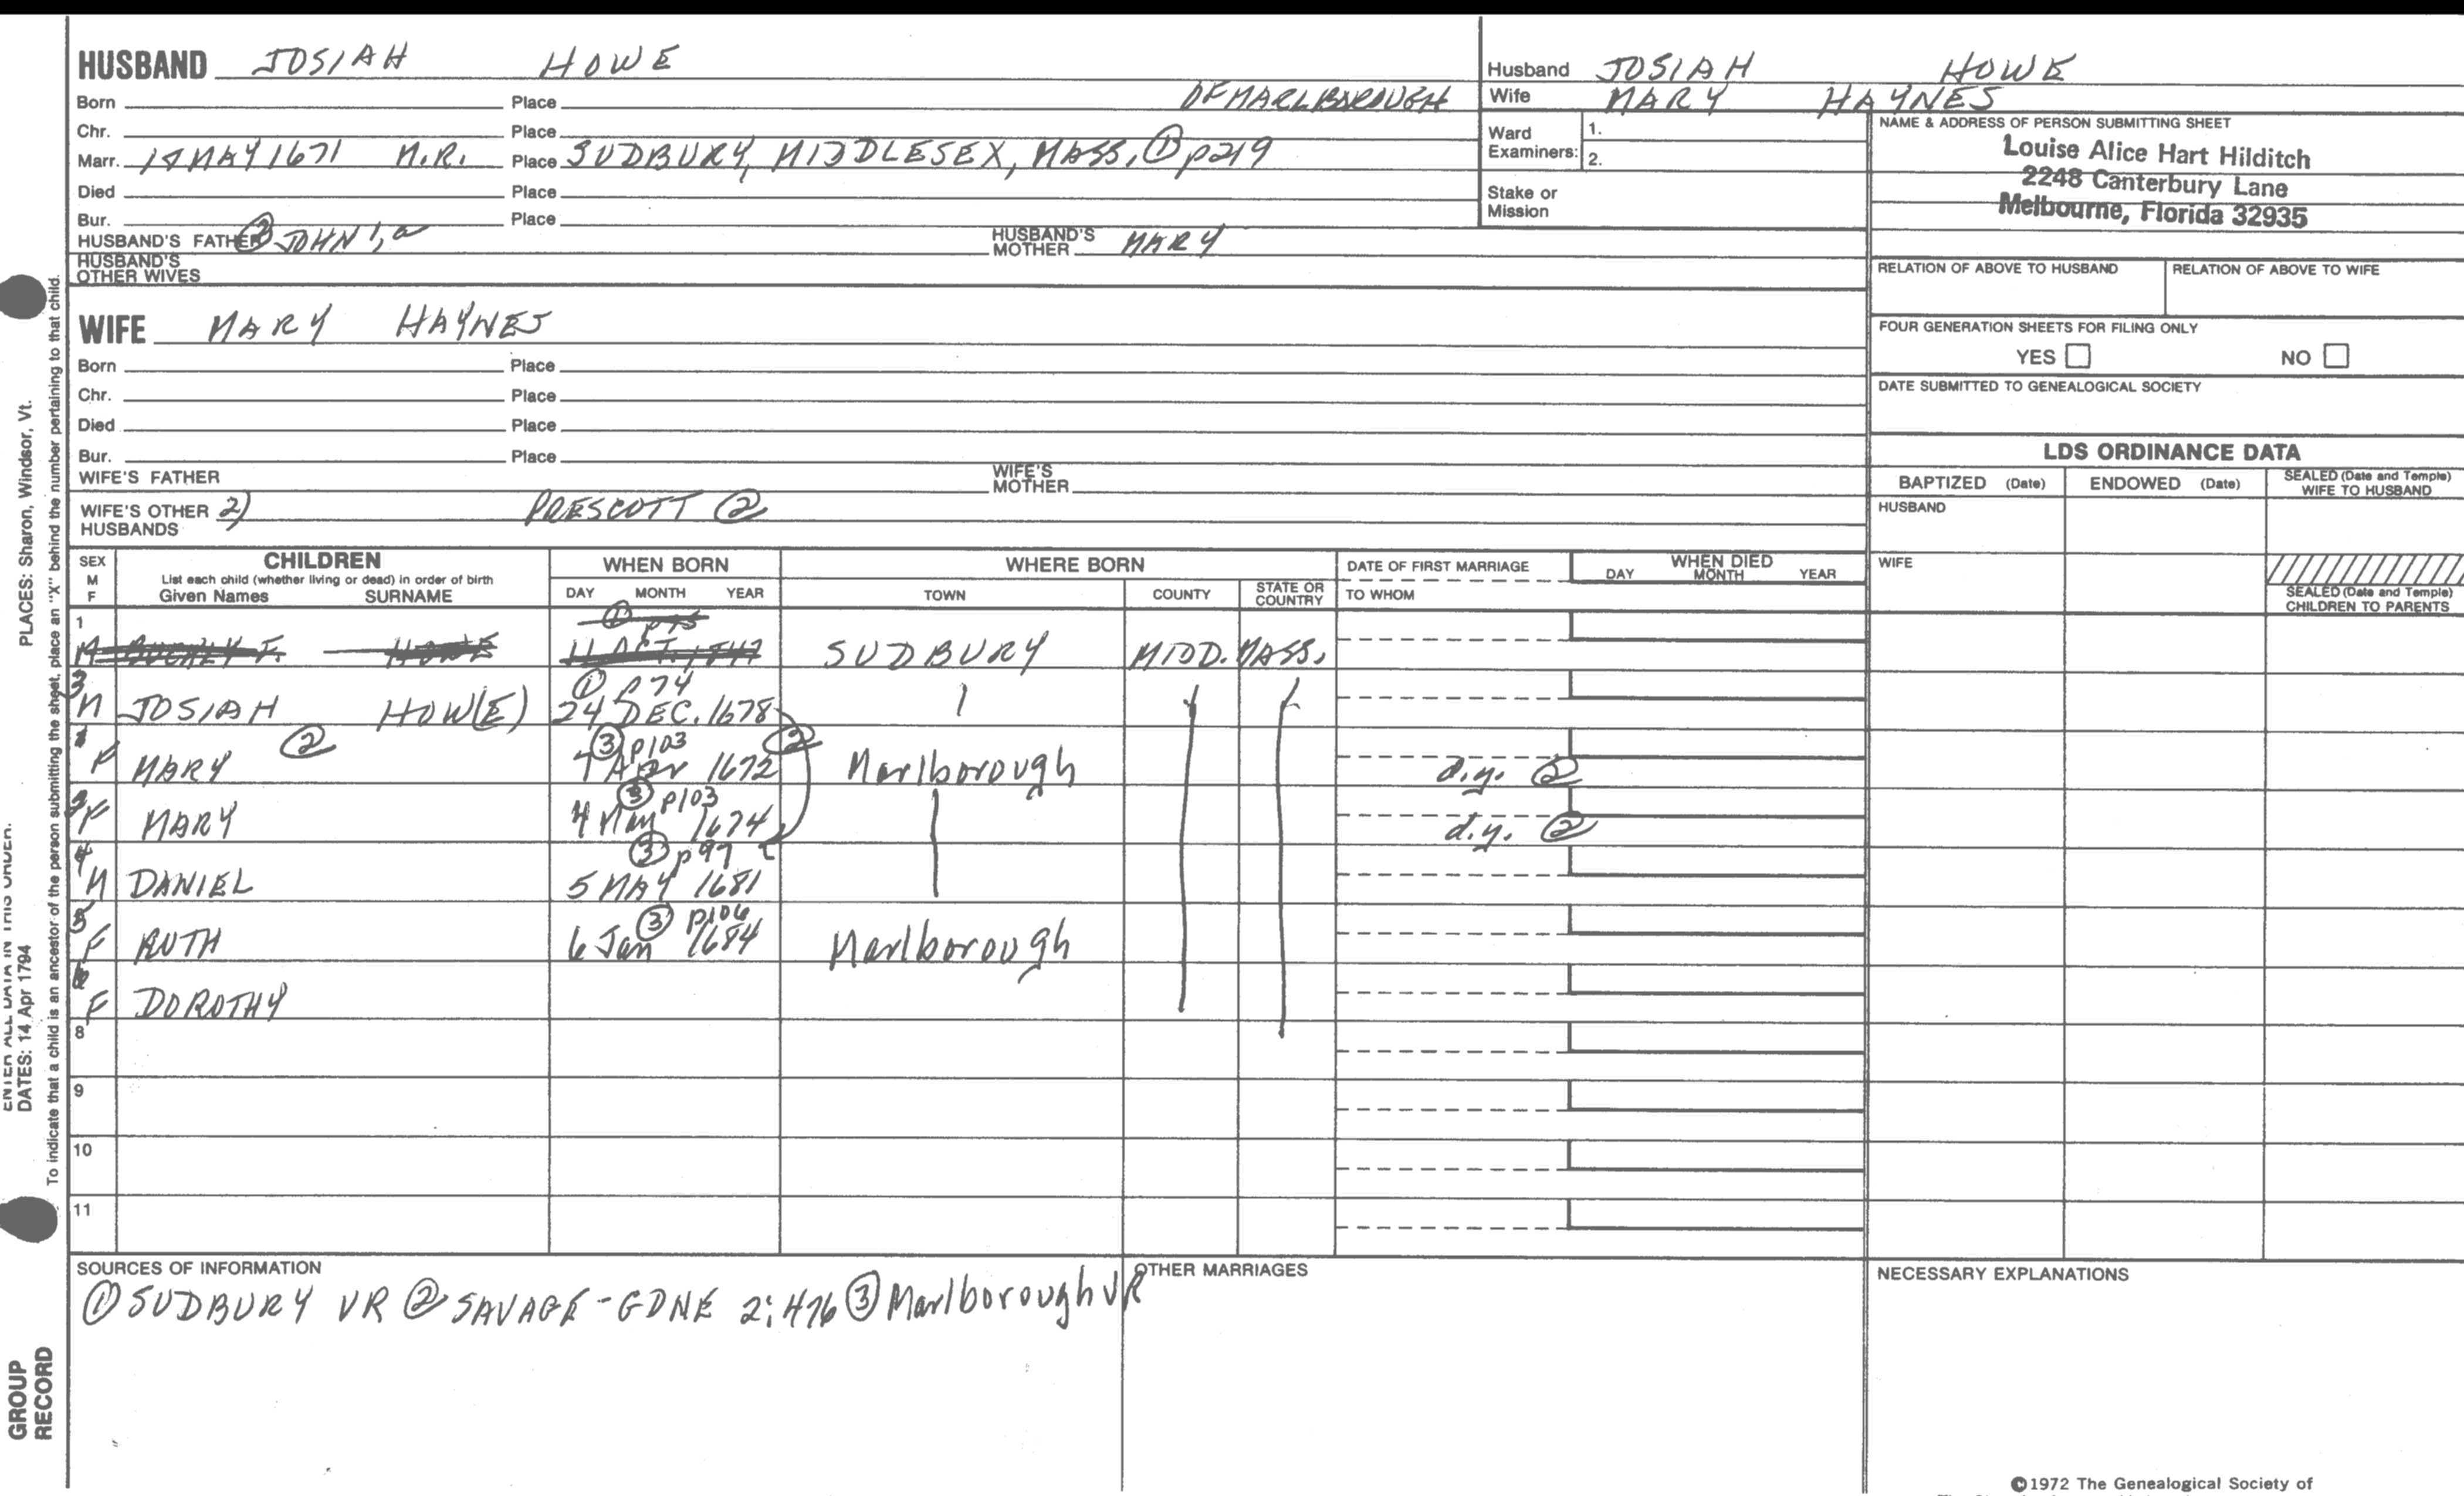 HUSBAND JOSIAH HOWE
Born Place OF MARLBOROUGH
Chr. Place
Marr. MAY 1671 Place SUDBURY, MIDDLESEX, MASS. ① p219
Died Place
Bur. Place
HUSBAND'S FATHER ② JOHN 1, a HUSBAND'S MOTHER MARY
HUSBAND'S OTHER WIVES
Husband JOSIAH HOWE
Wife MARY HAYNES
Ward Examiners: 1.
2.
Stake or Mission
NAME & ADDRESS OF PERSON SUBMITTING SHEET
Louise Alice Hart Hilditch
2248 Canterbury Lane
Melbourne, Florida 32935
RELATION OF ABOVE TO HUSBAND RELATION OF ABOVE TO WIFE
FOUR GENERATION SHEETS FOR FILING ONLY
YES NO
DATE SUBMITTED TO GENEALOGICAL SOCIETY
WIFE MARY HAYNES
Born Place
Chr. Place
Died Place
Bur. Place
WIFE'S FATHER WIFE'S MOTHER
WIFE'S OTHER HUSBANDS 2) PRESCOTT ②
LDS ORDINANCE DATA
BAPTIZED (Date) ENDOWED (Date) SEALED (Date and Temple) WIFE TO HUSBAND
HUSBAND
WIFE
SEALED (Date and Temple) CHILDREN TO PARENTS
SEX M F
CHILDREN
List each child (whether living or dead) in order of birth
Given Names SURNAME
WHEN BORN
DAY MONTH YEAR
WHERE BORN
TOWN COUNTY STATE OR COUNTRY
DATE OF FIRST MARRIAGE
TO WHOM
WHEN DIED
DAY MONTH YEAR
1
M HOWE SUDBURY MIDD. MASS.
① p74
3 M JOSIAH HOW(E) 24 DEC. 1678
② ③ p103 ②
1 F MARY 7 Apr 1672 Marlborough d.y. ②
③ p103
2 F MARY 4 May 1674 d.y. ②
③ p97
4 M DANIEL 5 MAY 1681
③ p106
5 F RUTH 6 Jan 1684 Marlborough
6 F DOROTHY
8
9
10
11
SOURCES OF INFORMATION
① SUDBURY VR ② SAVAGE-GDNE 2:476 ③ Marlborough VR
OTHER MARRIAGES
NECESSARY EXPLANATIONS
©1972 The Genealogical Society of
PLACES: Sharon, Windsor, Vt.
ENTER ALL DATA IN THIS ORDER:
DATES: 14 Apr 1794
To indicate that a child is an ancestor of the person submitting the sheet, place an "X" behind the number pertaining to that child.
GROUP
RECORD